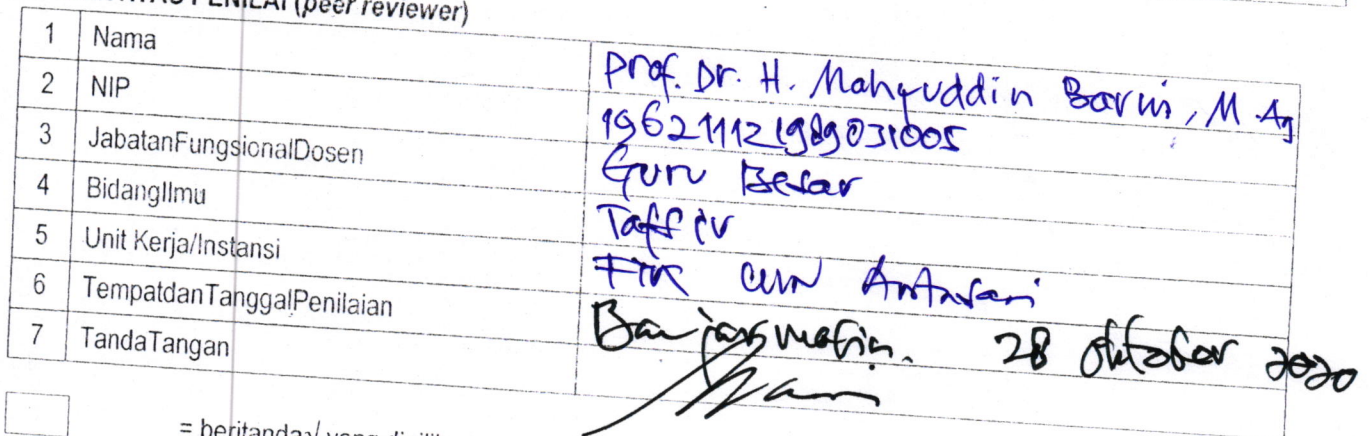 PENILAI (peer reviewer)
1 Nama Prof. Dr. H. Mahyuddin Barni, M.Ag
2 NIP 196211121989031005
3 JabatanFungsionalDosen Guru Besar
4 BidangIlmu Tafsir
5 Unit Kerja/Instansi FTK UIN Antasari
6 TempatdanTanggalPenilaian Banjarmasin. 28 Oktober 2020
7 TandaTangan
= beritanda√ yang